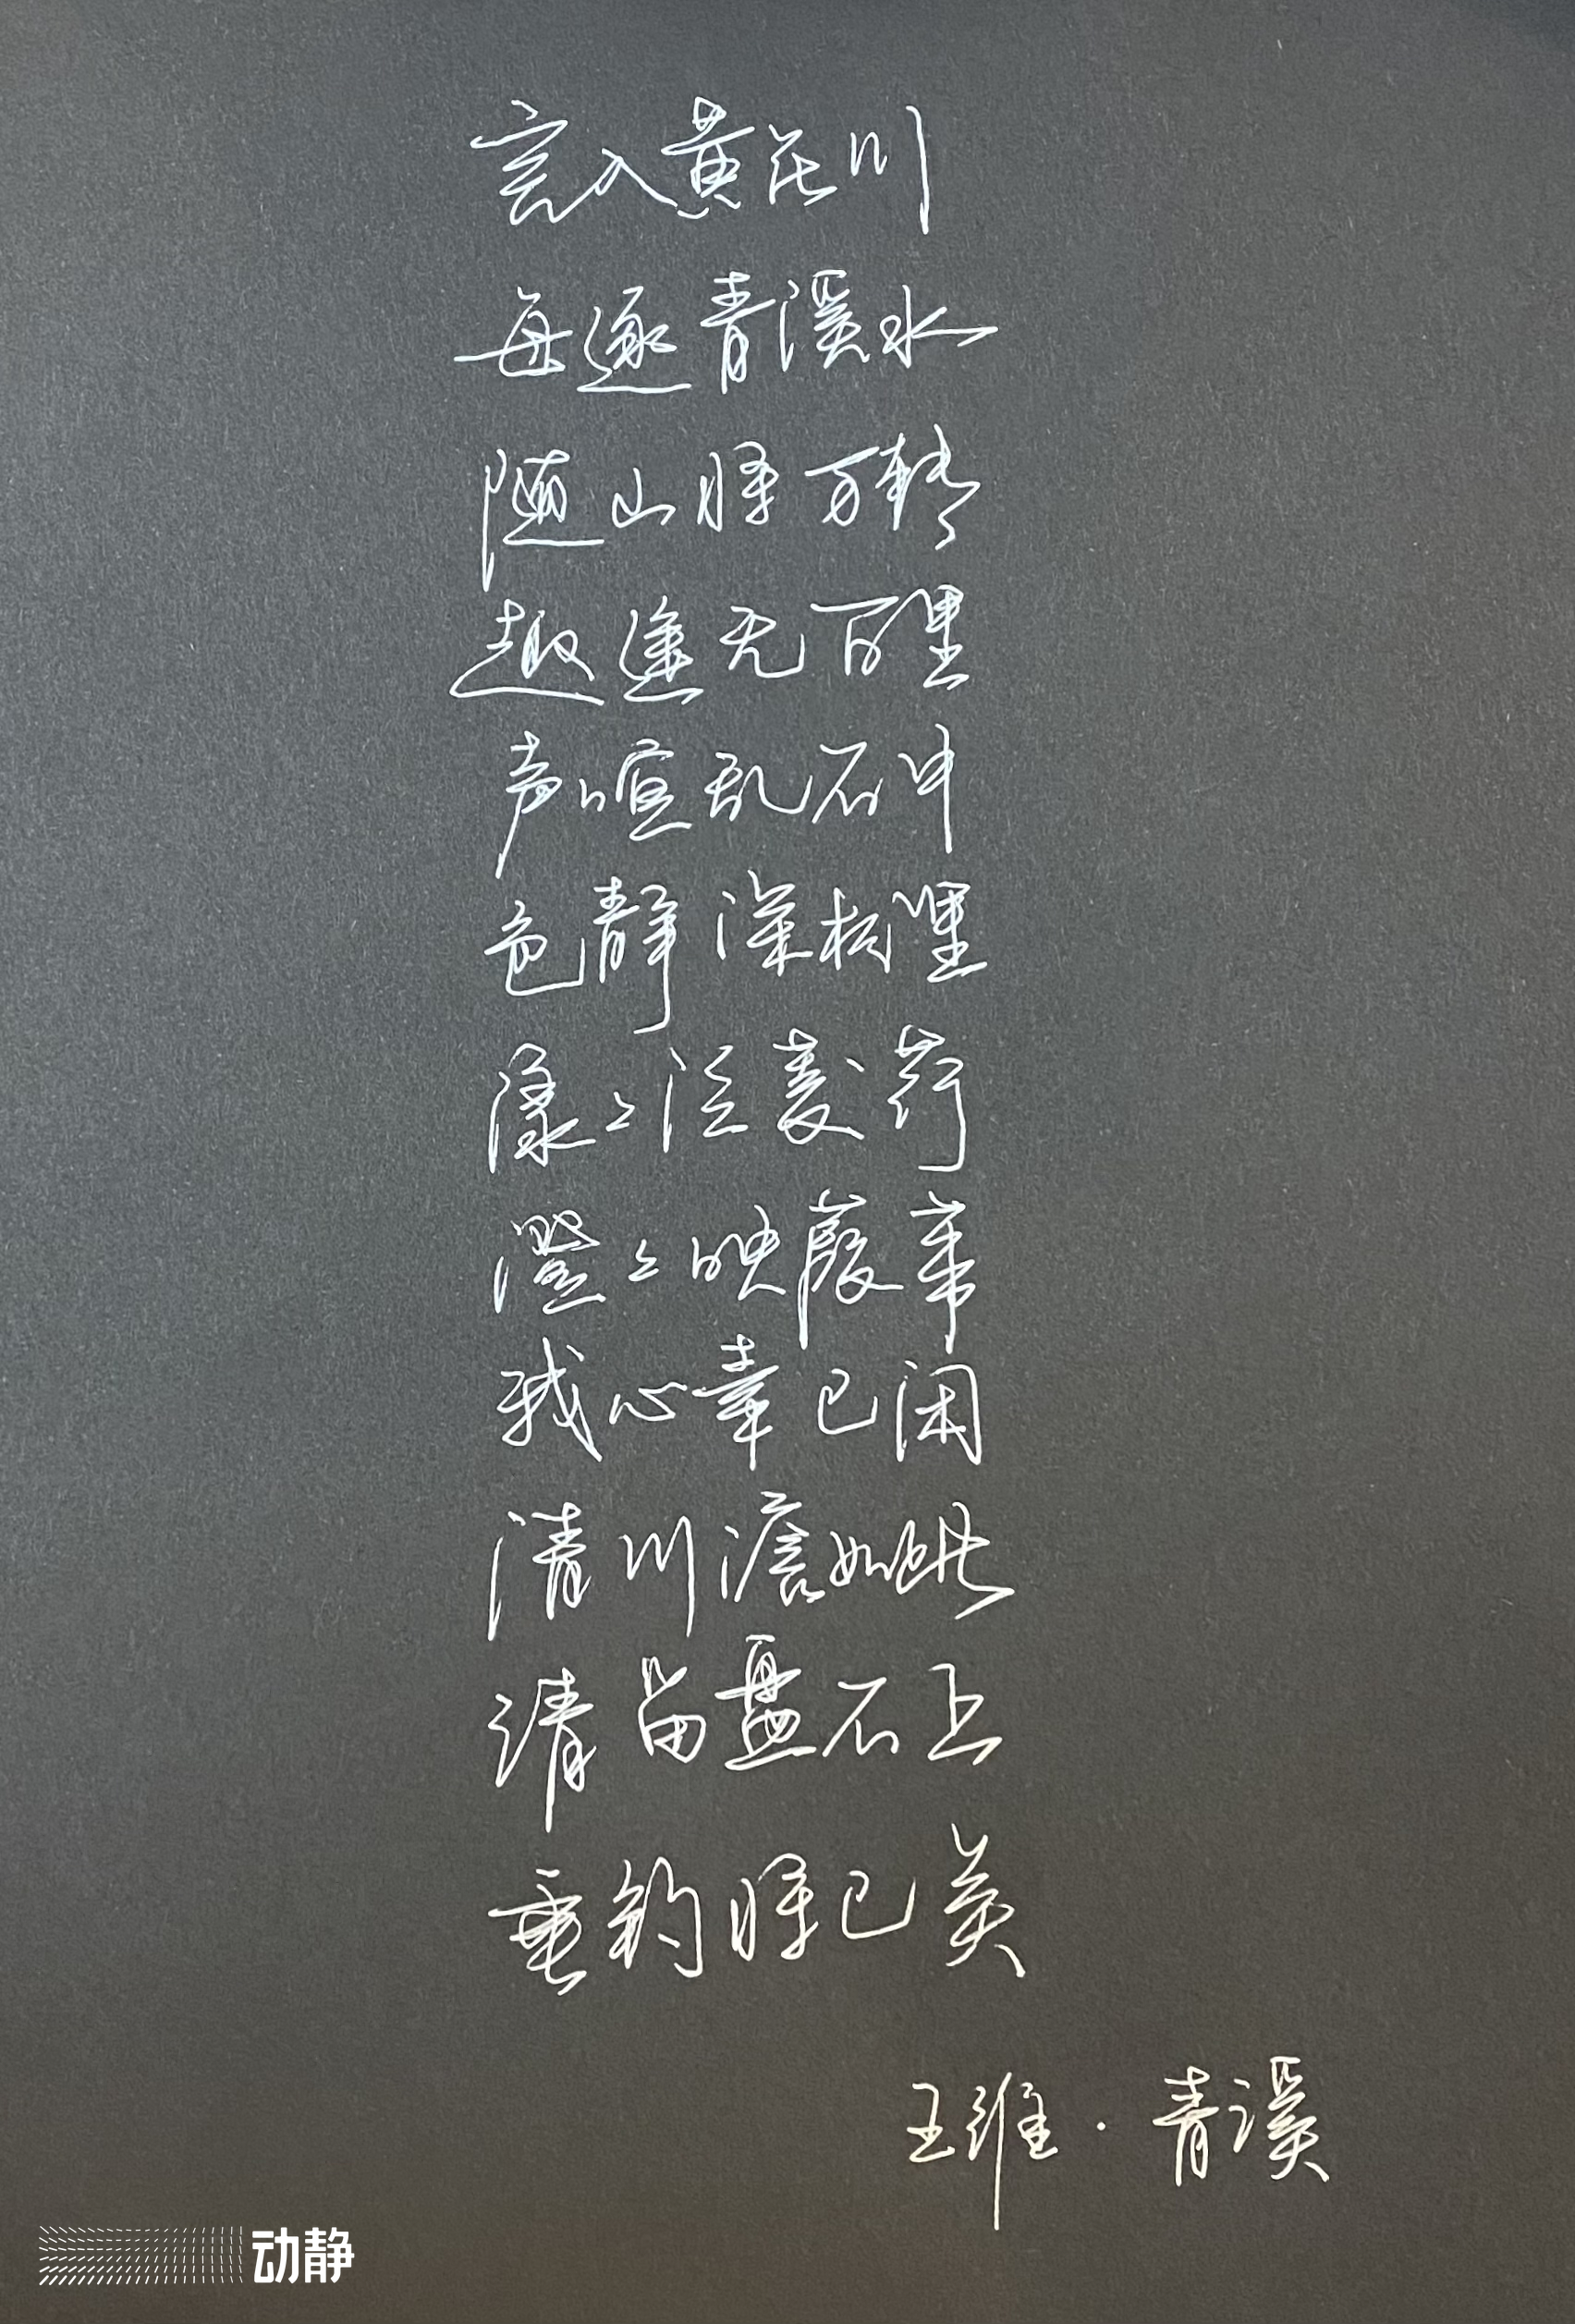 言入黄花川
每逐青溪水
随山将万转
趣途无百里
声喧乱石中
色静深松里
漾々泛菱荇
澄々映葭苇
我心素已闲
清川澹如此
请留盘石上
垂钓将已矣
王维·青溪
动静